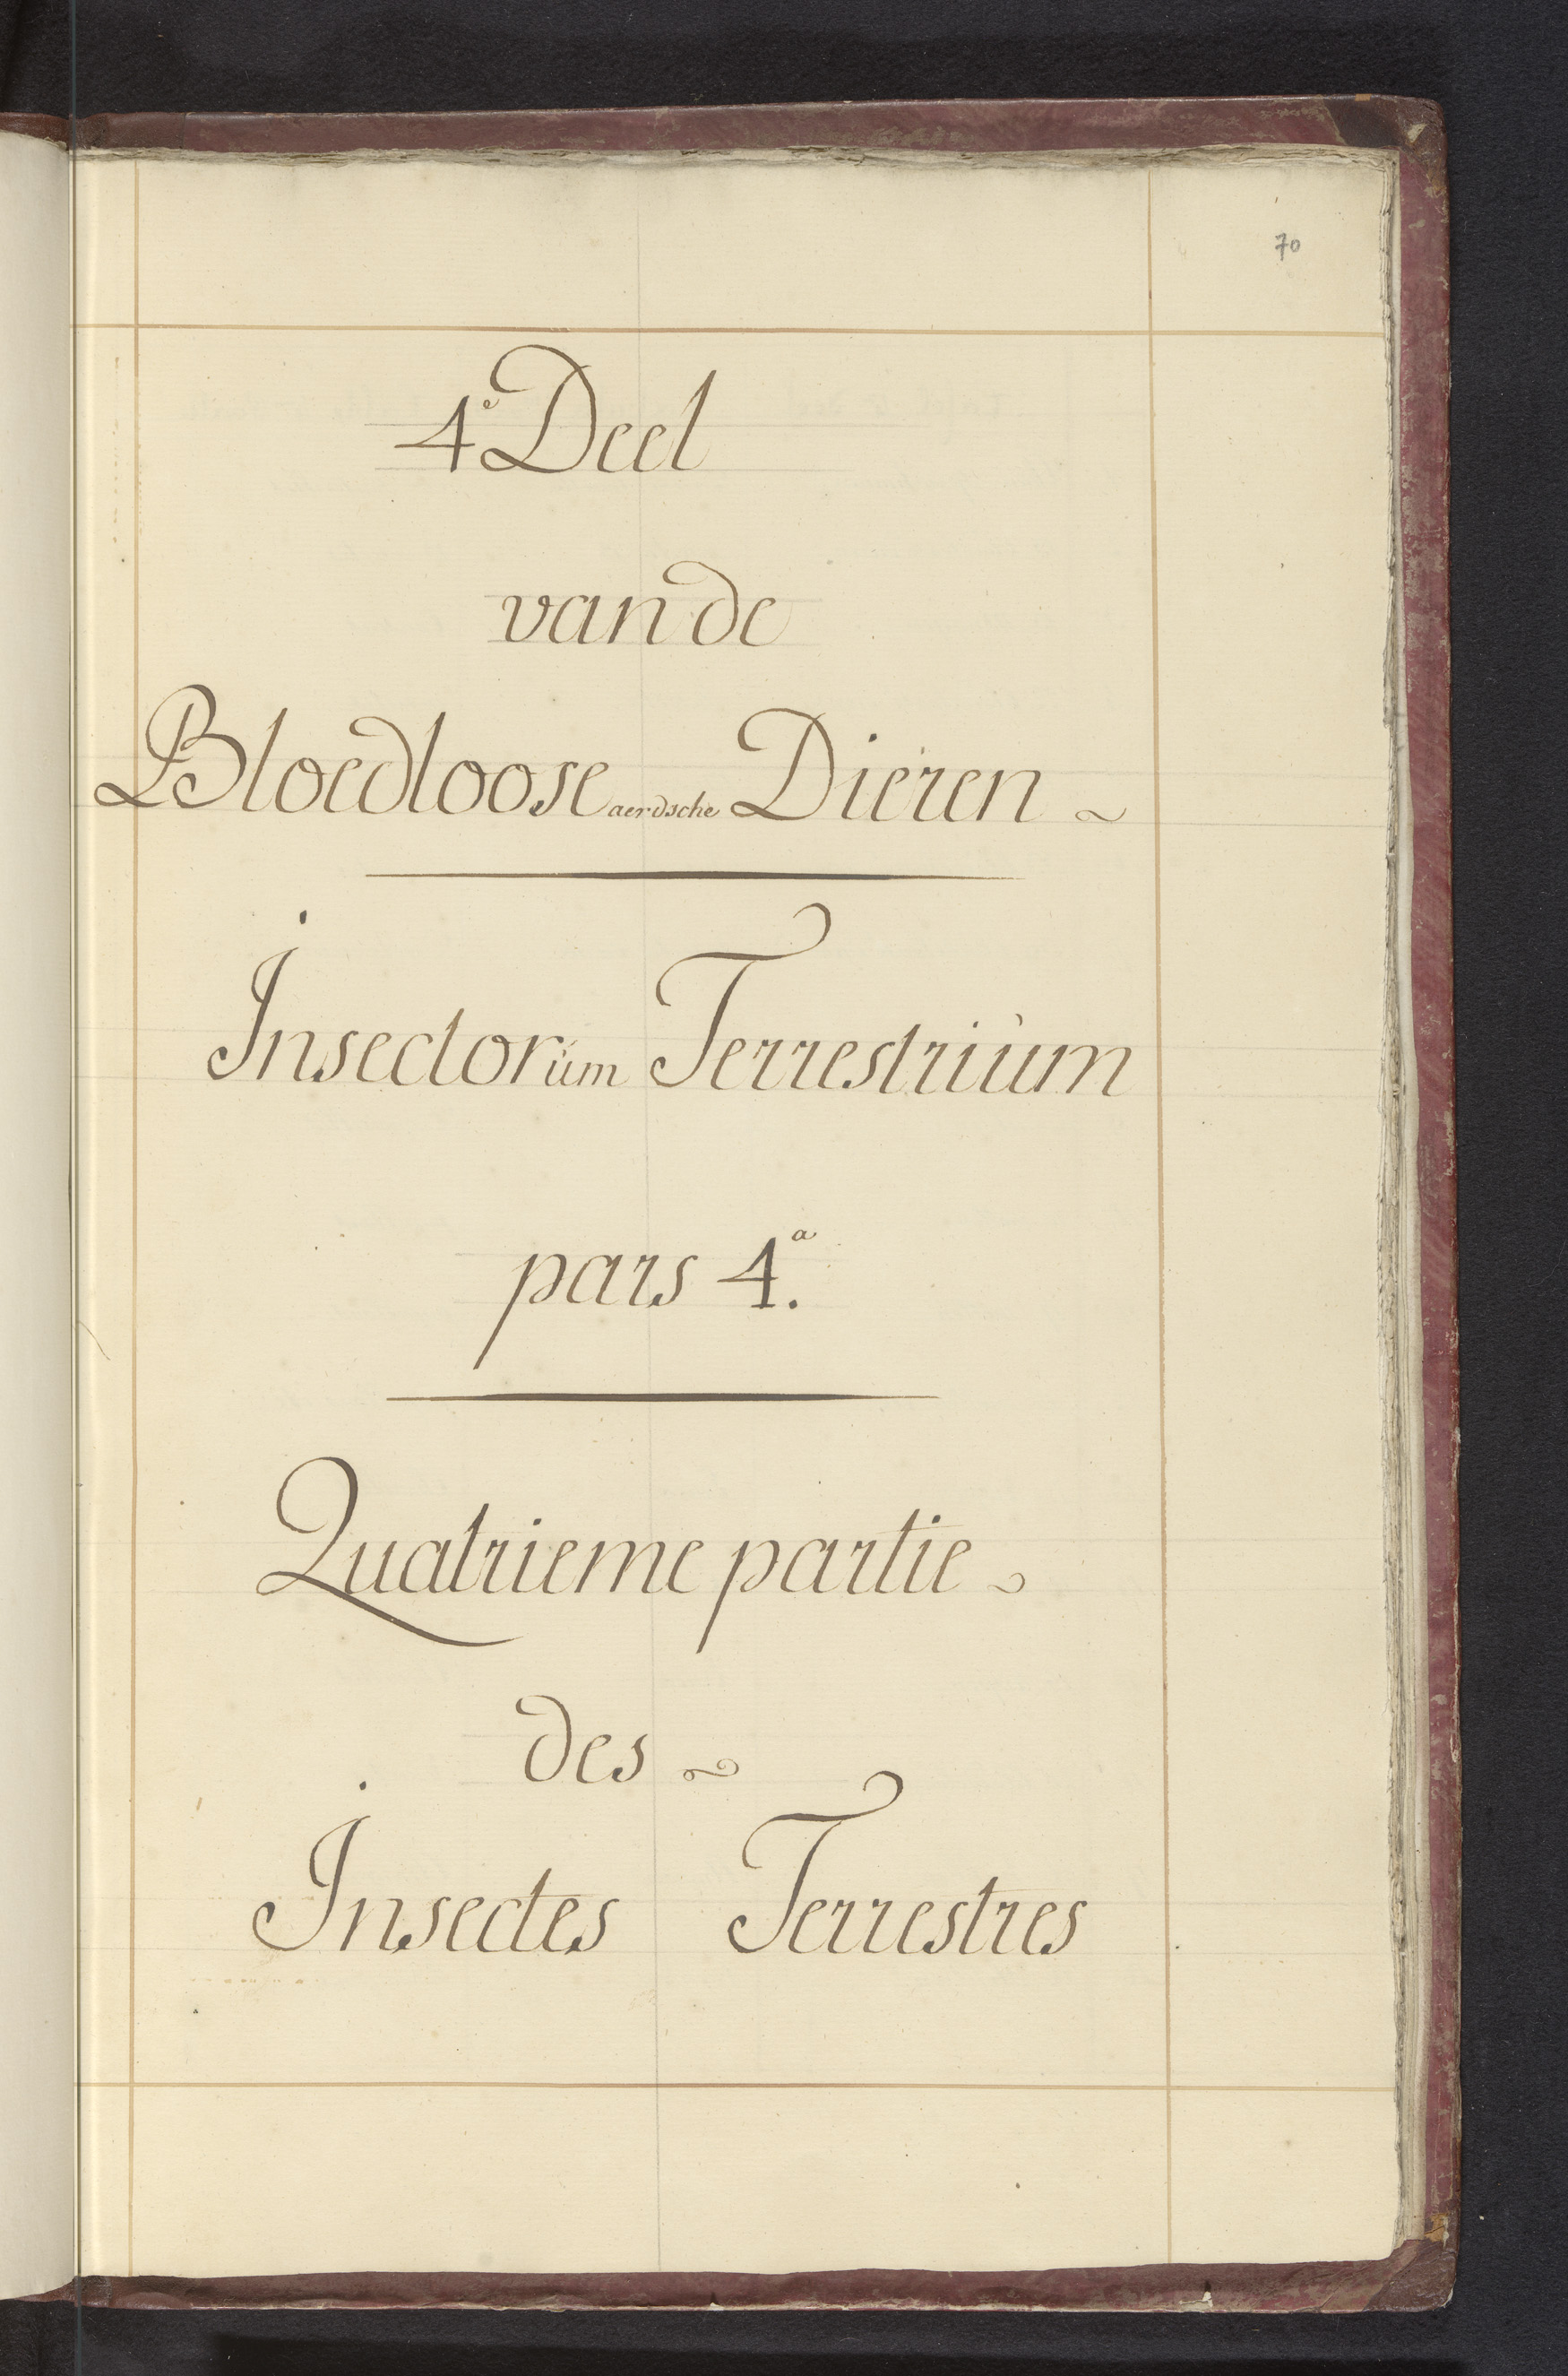 70
4e Deel
van de
Bloedloose aerdsche Dieren ~
Insectorúm Terrestriùm
pars 4a.
Quatrieme partie ~
des ~
Insectes Terrestres